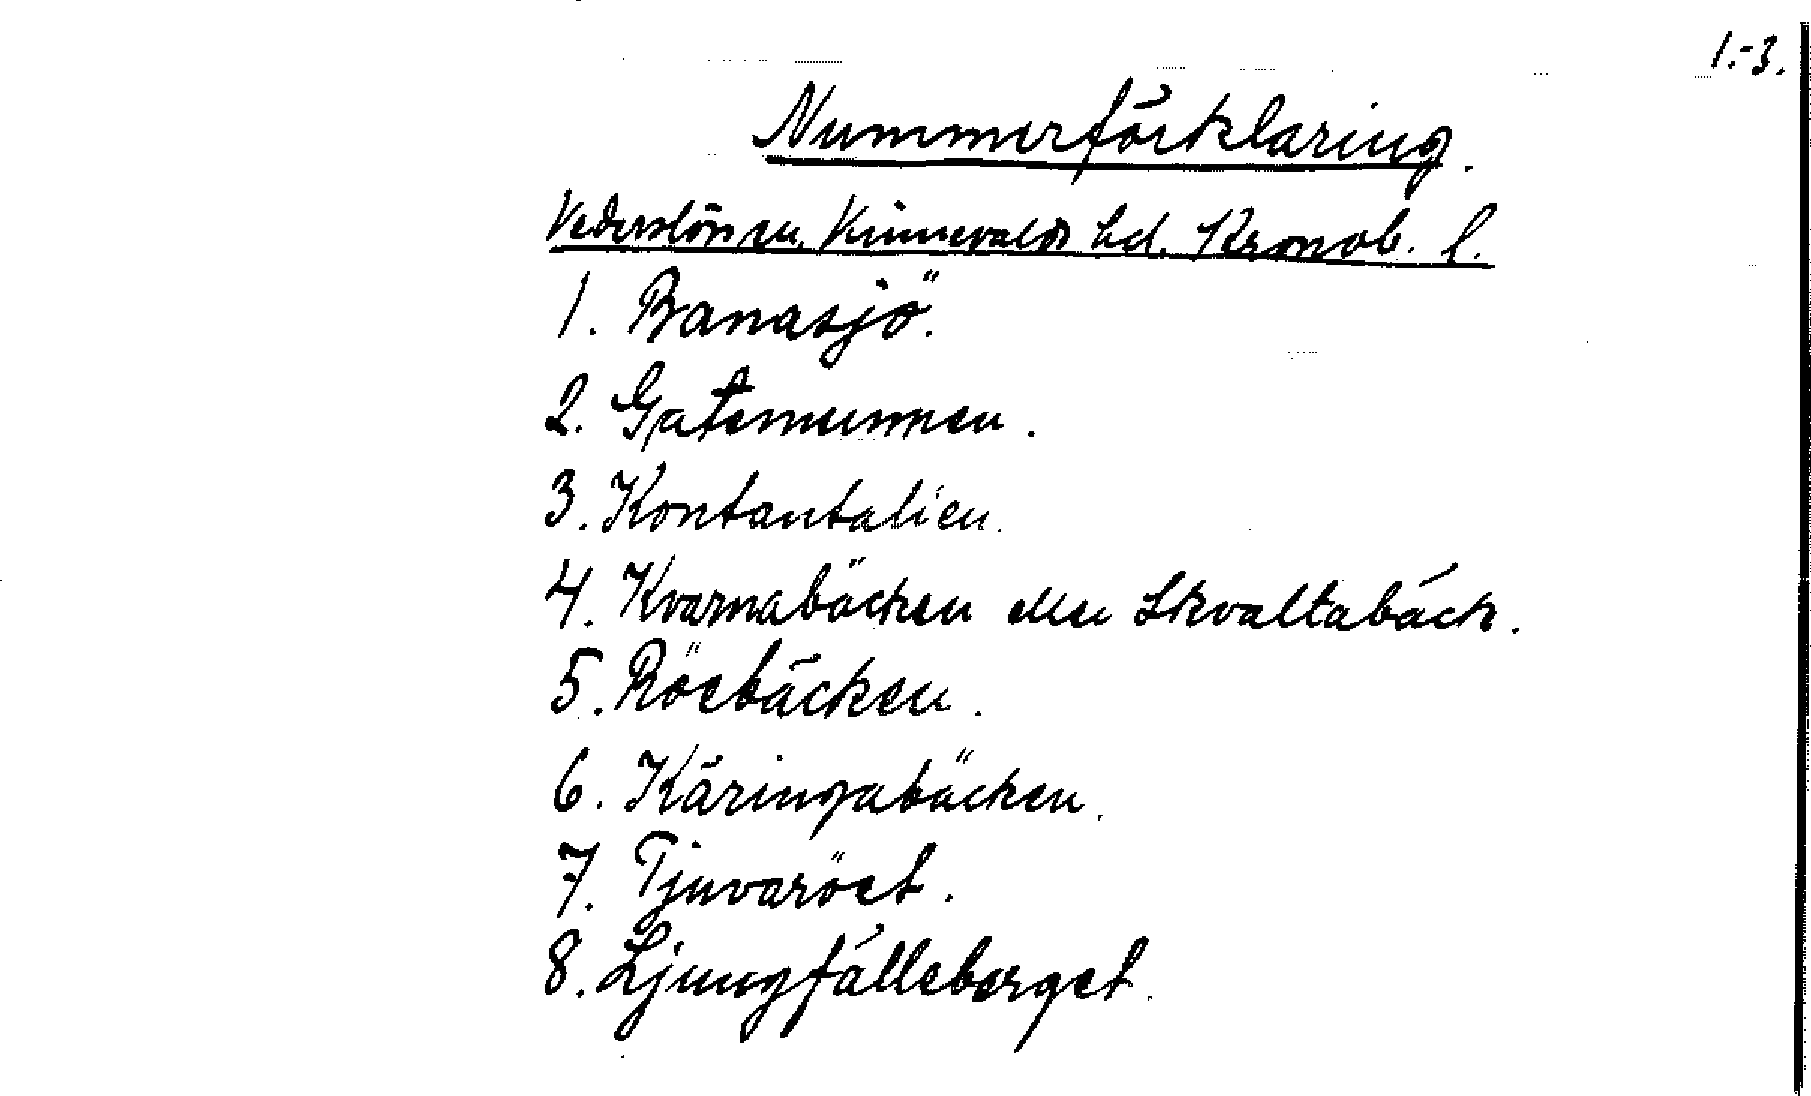 1.-3.
Nummerförklaring.
Vederslövs sn. Kinnevalds hd. Kronob. l.
1. Banasjö.
2. Gatemunnen.
3. Kontantalien.
4. Kvarnabäcken eller Skvaltabäck.
5. Röebäcken.
6. Käringabäcken.
7. Tjuvaröet.
8. Ljungfälleberget.